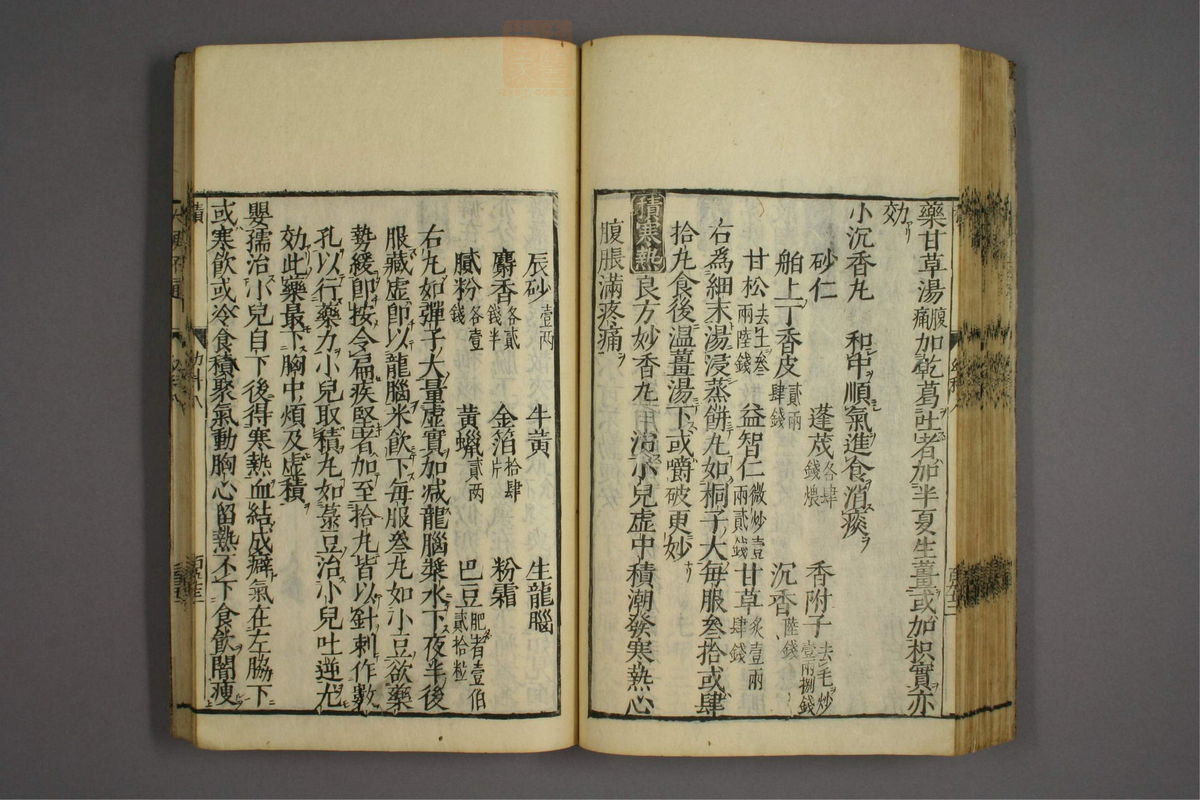 藥甘草湯腹痛加乾葛吐者加半夏生薑或加枳實亦
効
小沉香丸　和中順氣進食消痰
砂仁　蓬茂各肆錢煨　香附子去毛炒壹兩捌錢
舶上丁香皮貳兩肆錢　沉香陸錢
甘松去生叄兩陸錢　益智仁微炒壹兩貳錢　甘草炙壹兩肆錢
右爲細末湯浸蒸餅丸如桐子大每服叄拾或肆
拾丸食後温薑湯下或嚼破更妙
積寒熱　良方妙香丸用治小兒虚中積潮發寒熱心
腹脹滿疼痛
辰砂壹两　牛黄　生龍腦
麝香各貳錢半　金箔拾肆片　粉霜
膩粉各壹錢　黄蠟貳两　巴豆肥者壹伯貳拾粒
右丸如彈子大量虚實加减龍腦漿水下夜半後
服藏虚卽以龍腦米飲下每服叄丸如小豆欲藥
勢緩卽按令扁疾堅者加至拾丸皆以針刺作數
孔以行藥力小兒取積丸如菉豆治小兒吐逆尤
効此藥最下胸中煩及虚積
嬰孺治小兒自下後得寒熱血結成癖氣在左脇下
或寒飲或冷食積聚氣動胸心留熱不下食飲闇瘦